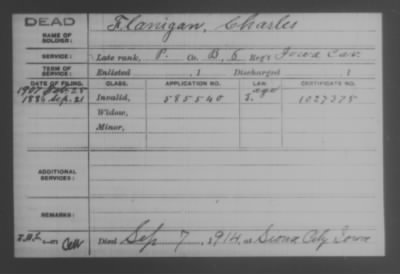 DEAD
NAME OF SOLDIER:
Flanigan, Charles
SERVICE:
Late rank, P. Co. B, 5 Reg't Iowa Cav.
TERM OF SERVICE:
Enlisted , 1 Discharged , 1
DATE OF FILING. CLASS. APPLICATION NO. LAW. CERTIFICATE NO.
1907
1886 Sep. 21 Invalid, 585540 1027375
Widow,
Minor,
ADDITIONAL SERVICES:
REMARKS:
Died Sep 7, 1914, at Sioux City Iowa